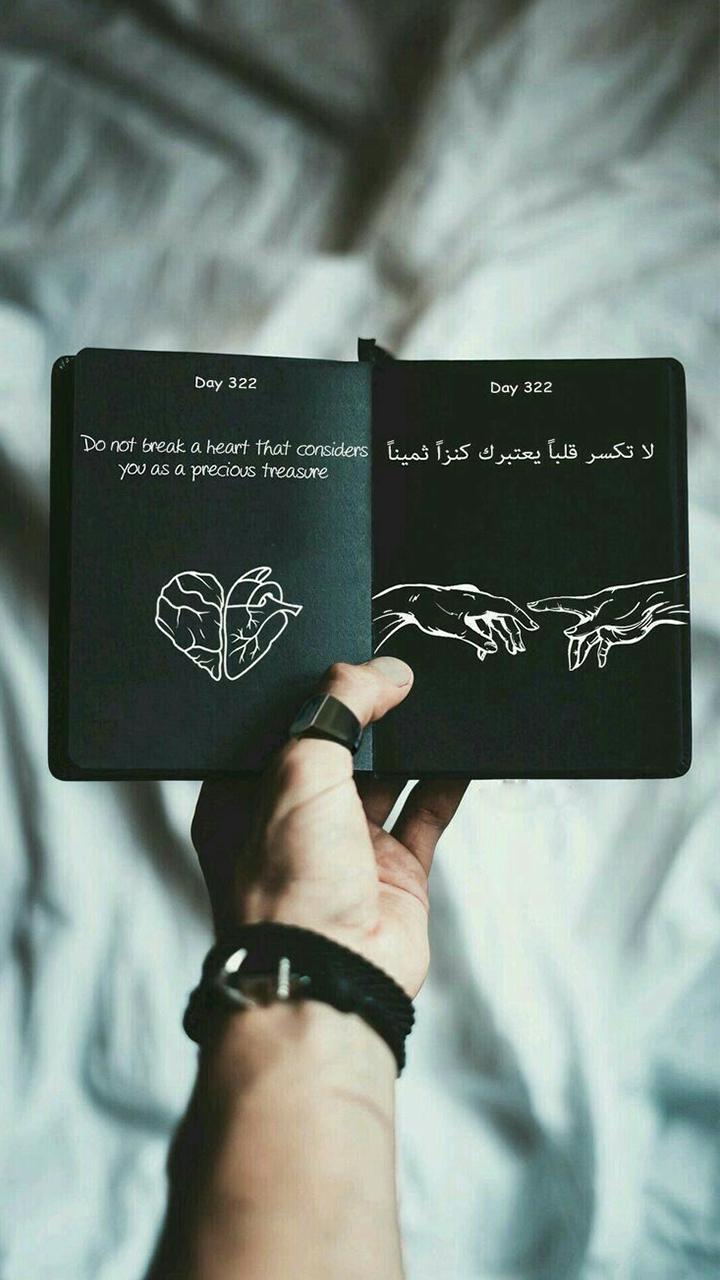 Day 322
Do not break a heart that considers
you as a precious treasure
Day 322
لا تكسر قلباً يعتبرك كنزاً ثميناً